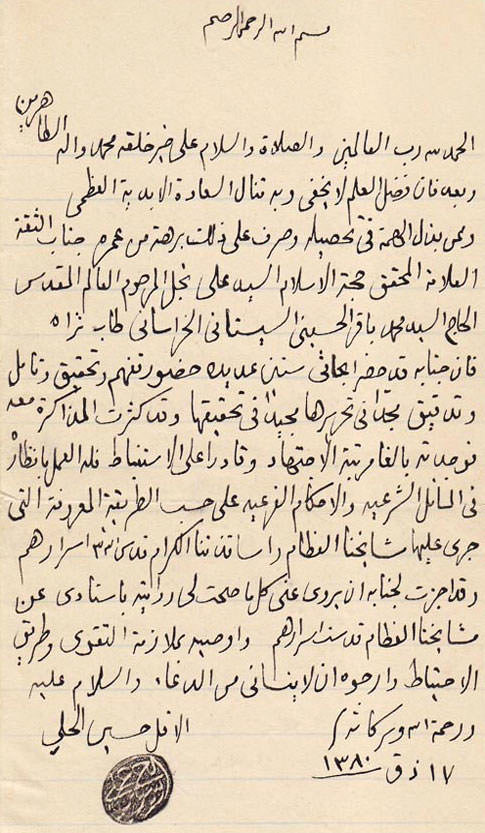 بسم الله الرحمن الرحيم
الحمد لله رب العالمين والصلاة والسلام على خير خلقه محمد واله الطاهرين
وبعد فان فضل العلم لا يخفى وبه تنال السعادة الابدية العظمى
وممن بذل الهمة في تحصيله وصرف على ذلك برهة من عمره جناب الثقة
العلامة المحقق حجة الاسلام السيد علي نجل المرحوم العالم المقدس
الحاج السيد محمد باقر الحسيني السيستاني الخراساني طاب ثراه
فان جنابه قد حضر ابحاثي سنين عديده حضور تفهم وتحقيق وتامل
وتدقيق مجدّاً في تحريرها مجيداً في تحقيقها وقد كثرت المذاكرة معه
فوجدته بالغا مرتبة الاجتهاد وقادرا على الاستنباط فله العمل بانظاره
في المسائل الشرعيه والاحكام الفرعيه على حسب الطريقة المعروفة التي
جرى عليها مشايخنا العظام واساتذتنا الكرام قدس الله اسرارهم
وقد اجزت لجنابه ان يروي عني كل ما صحت لي روايته باسنادي عن
مشايخنا العظام قدست اسرارهم واوصيه بملازمة التقوى وطريق
الاحتياط وارجوه ان لا ينساني من الدعاء والسلام عليه
ورحمة الله وبركاته الاقل حسين الحلي
١٧ ذق ١٣٨٠